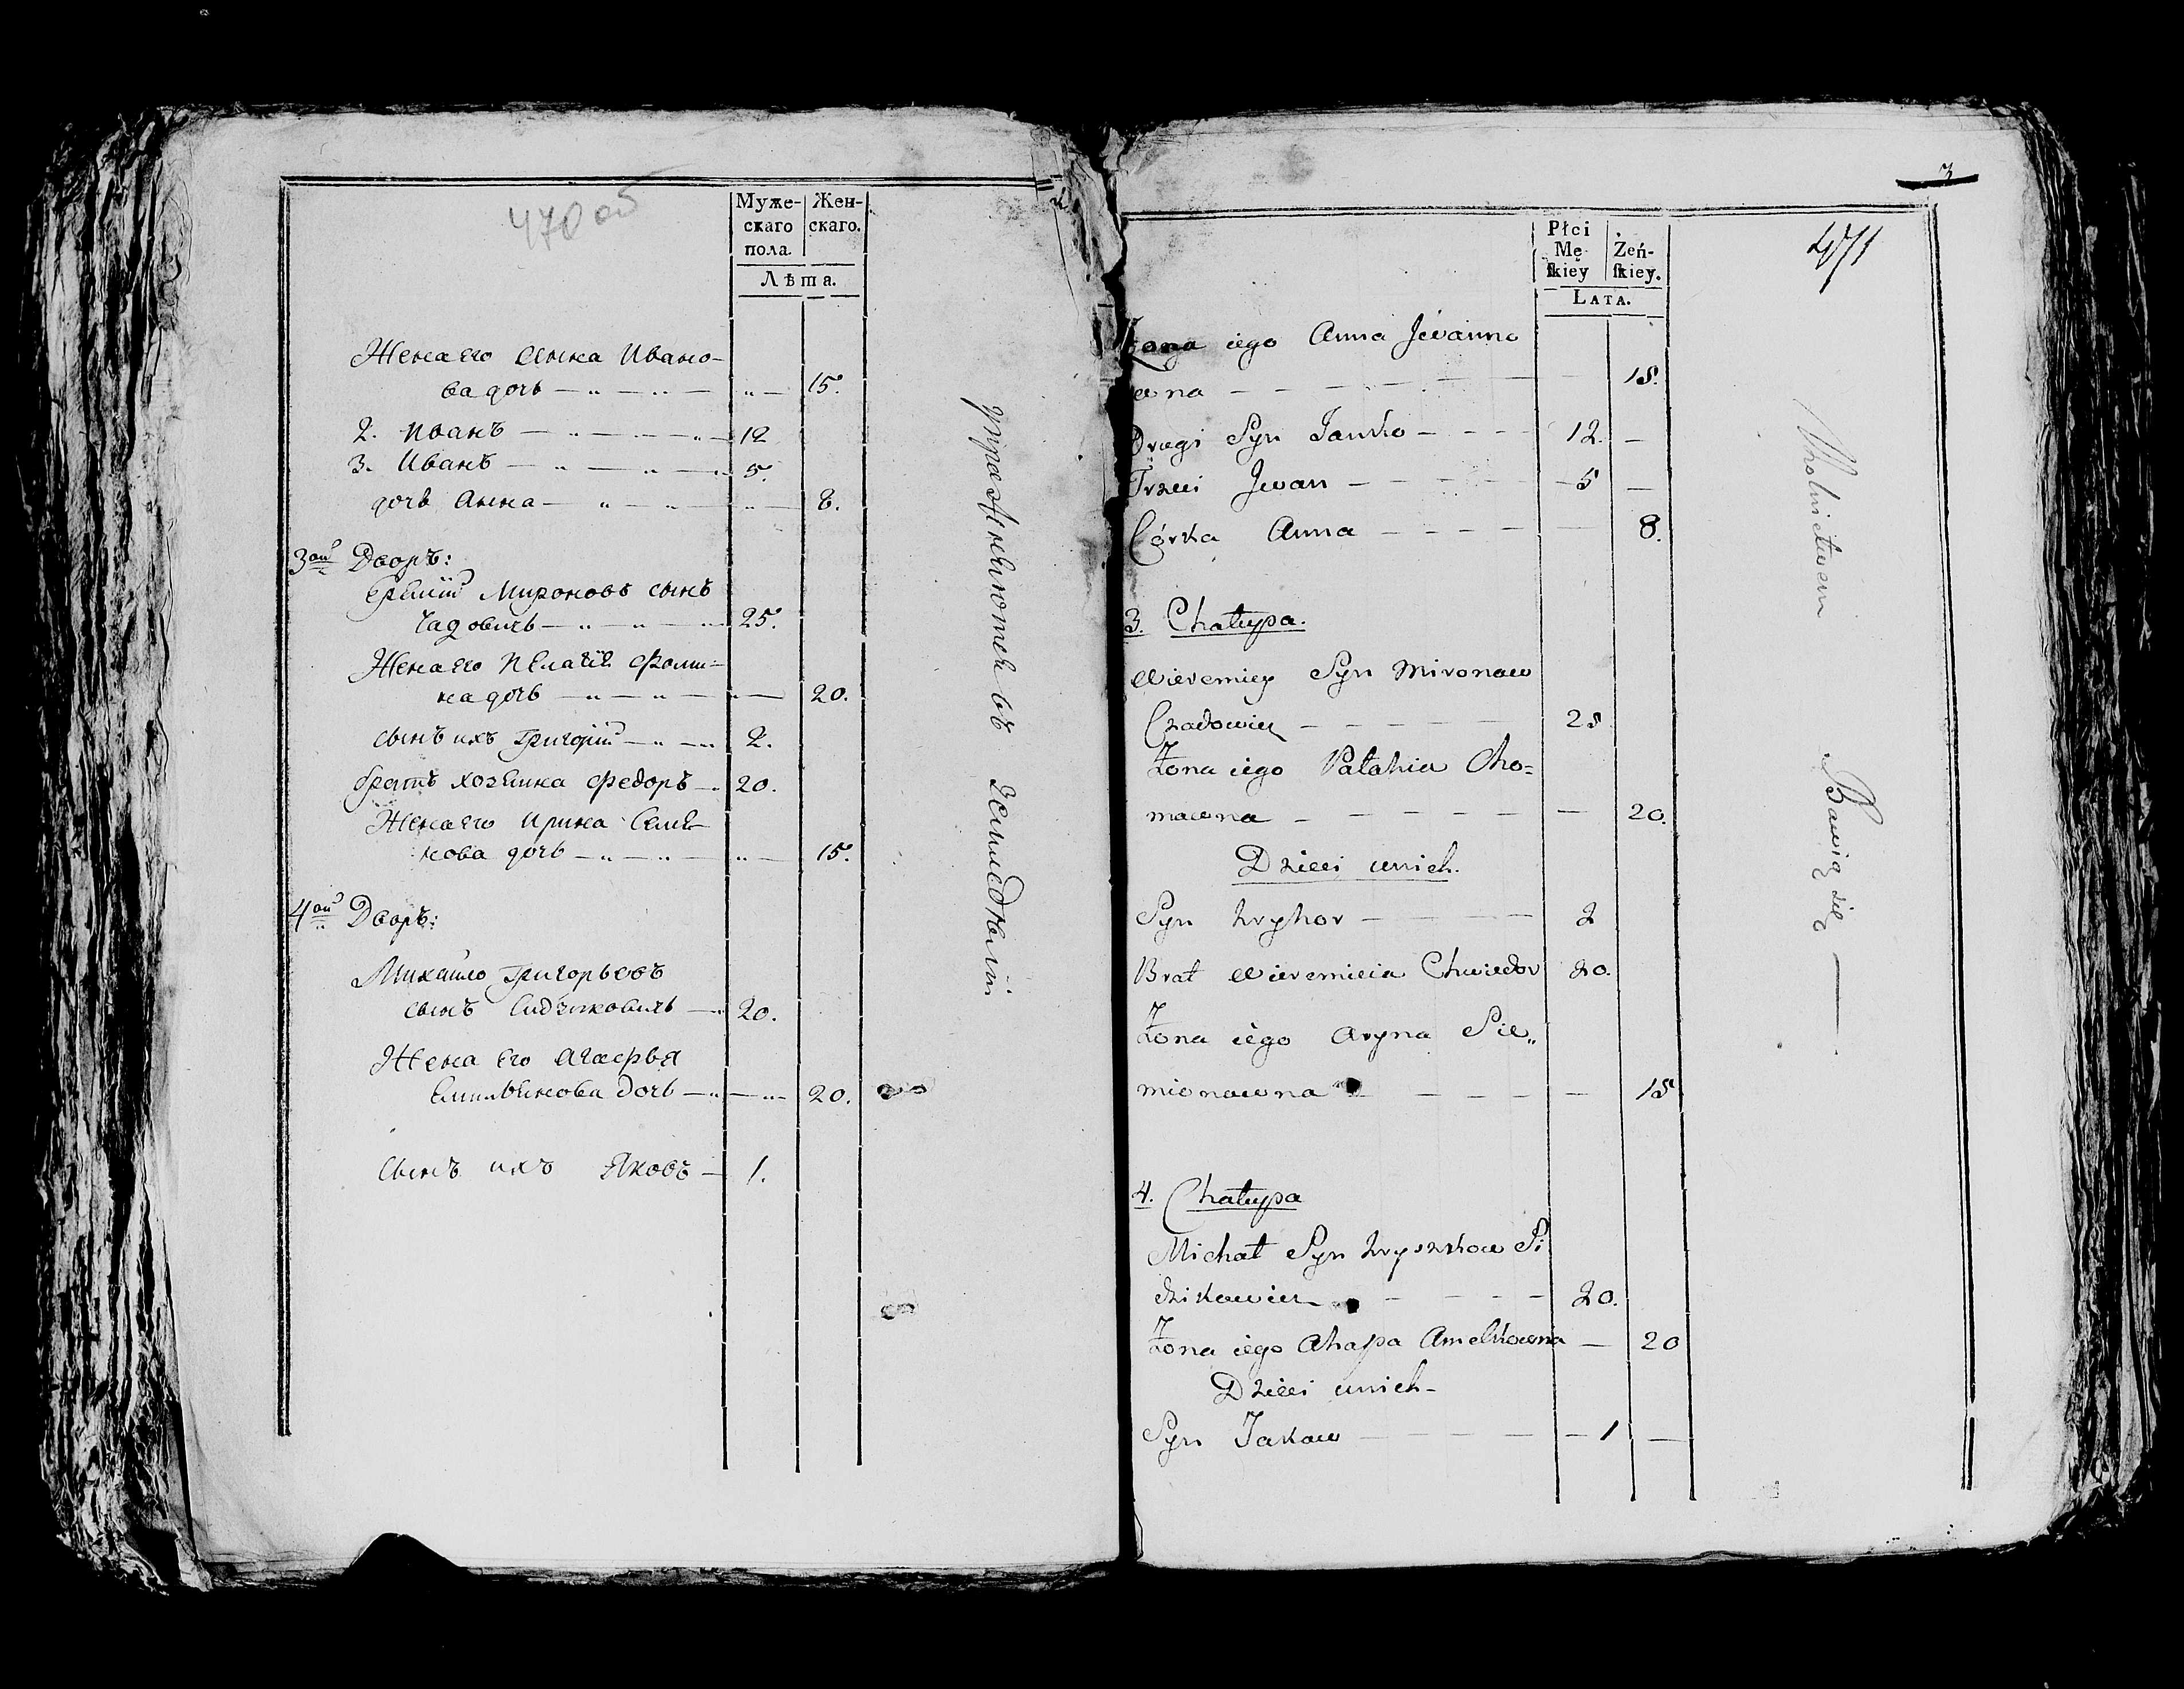 470 об
Муже-
скаго
пола.
Жен-
скаго.
Лѣта.
Жена его Анна Ивано-
ва дочь — „ — „ — „ — 15.
2. Иванъ — „ — „ — 12
3. Иванъ — „ — „ — 5.
дочь Анна — „ — „ — „ — 8.
3ой Дворъ:
Еремій Мироновъ сынъ
Чадовичь — „ — „ — 25.
Жена его Пелагія Фоми-
на дочь — „ — „ — „ — 20.
сынъ ихъ Григорій — „ — 2.
братъ хозяина Федоръ — 20.
Жена его Ирина Семе-
нова дочь — „ — „ — „ — 15.
4ой Дворъ:
Михайло Григорьевъ
сынъ Сидзиковичь — 20.
Жена его Агафья
Емильянова дочь — „ — „ — 20.
сынъ ихъ Яковъ — 1.
упражняются въ земледѣліи
3
471
Płci
Mę-
ſkiey
Żeń-
ſkiey.
LATA.
Żona iego Anna Jwanno
wna — — — — — — 15.
Drugi Syn Janko — — — 12. —
Trzeci Jwan — — — — 5 —
Córka Anna — — — — — 8.
3. Chałupa.
Wieremiey Syn Mironaw
Czadowicz — — — — — 25
Żona iego Pałahia Cho=
mawna — — — — — — 20.
Dzieci unich.
Syn Hryhor — — — 2
Brat Wieremieia Chwiedor 20.
Żona iego Aryna Sie„
mionawna — — — — 15
4. Chałupa
Michał Syn Hryszkow Si
dzikowicz — — — — 20.
Żona iego Ahapa Amelkowna — 20
Dzieci unich-
Syn Jakaw — — — — — 1 —
Rolnictwem Bawią się —